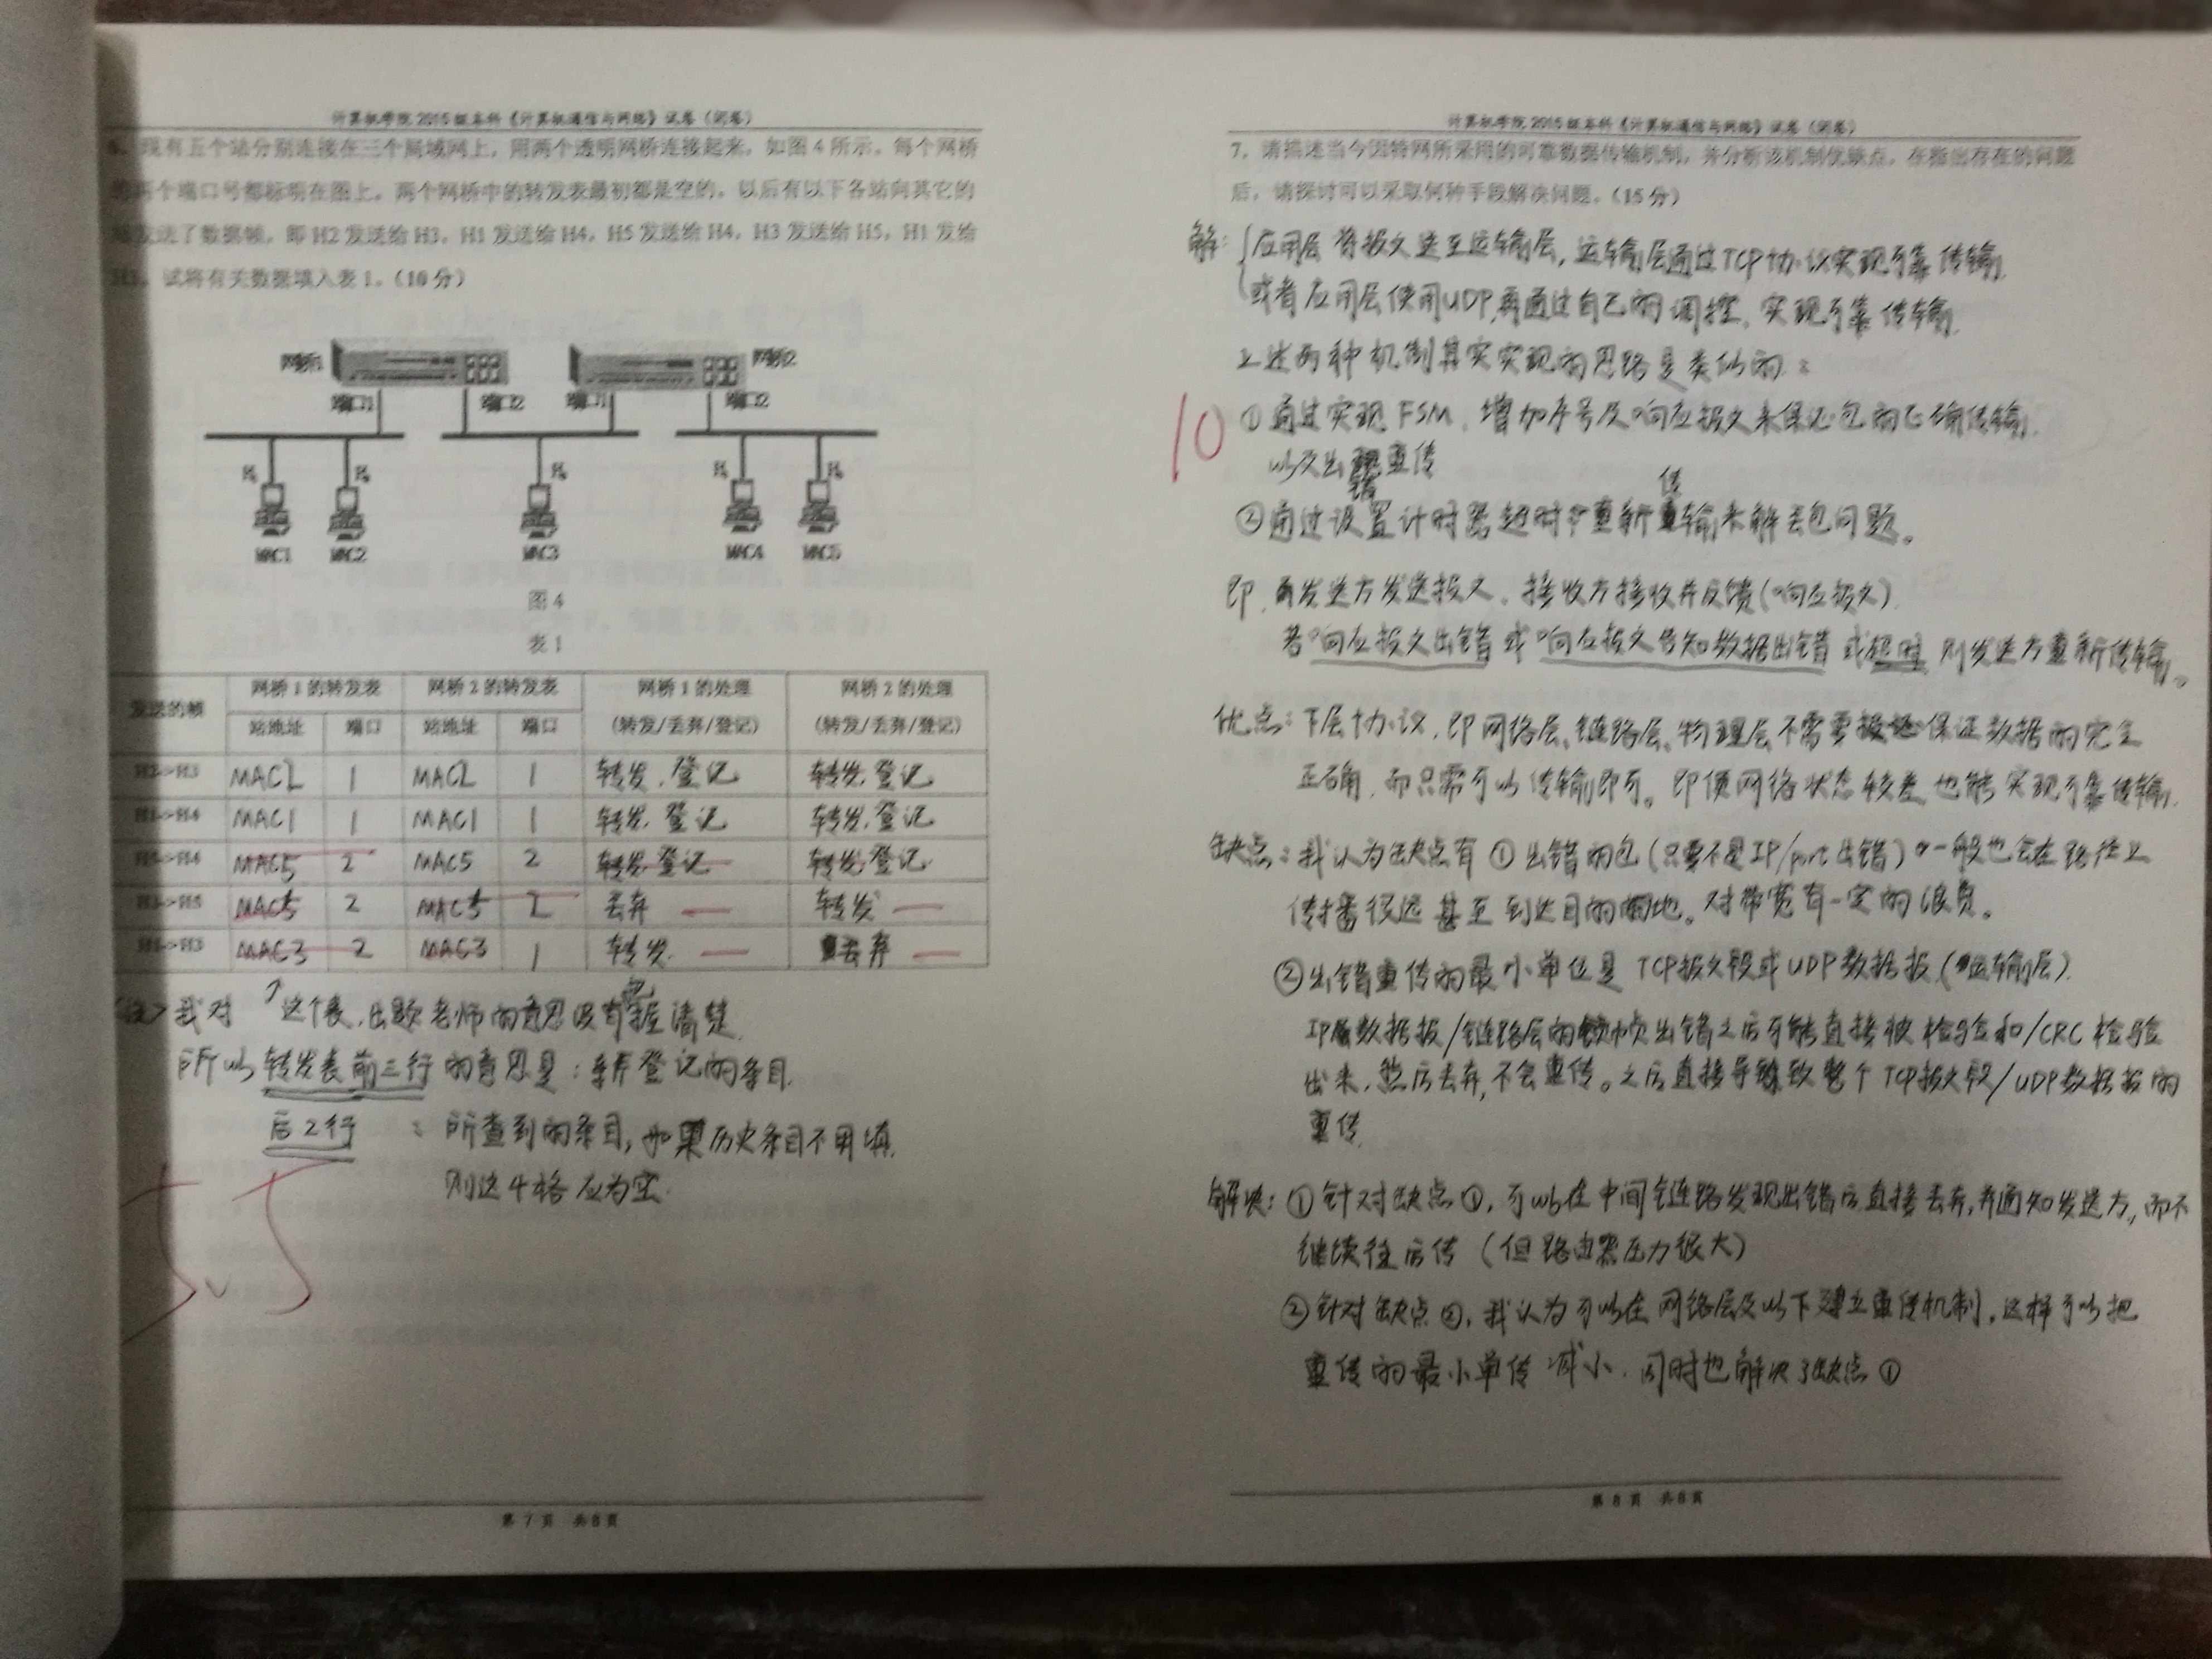 计算机学院2015级本科《计算机通信与网络》试卷（闭卷）
6、现有五个站分别连接在三个局域网上，用两个透明网桥连接起来，如图4所示。每个网桥
两个端口号都标明在图上。两个网桥中的转发表最初都是空的。以后有以下各站向其它的
发送了数据帧，即H2发送给H3，H1发送给H4，H5发送给H4，H3发送给H5，H1发给
H3。试将有关数据填入表1。（10分）
网桥1 网桥2
端口1 端口2 端口1 端口2
MAC1 MAC2 MAC3 MAC4 MAC5
图4
表1
发送的帧 网桥1的转发表 网桥2的转发表 网桥1的处理 网桥2的处理
站地址 端口 站地址 端口 （转发/丢弃/登记） （转发/丢弃/登记）
H2->H3 MAC2 1 MAC2 1 转发.登记 转发.登记
H1->H4 MAC1 1 MAC1 1 转发.登记 转发.登记
H5->H4 MAC5 2 MAC5 2 转发.登记 转发.登记
H3->H5 MAC5 2 MAC5 2 丢弃 转发
H1->H3 MAC3 2 MAC3 1 转发 丢弃
我对这个表，出题老师的意思没有把握清楚.
所以转发表前三行的意思是：新登记的条目.
后2行：所查到的条目，如果历史条目不用填.
则这4格应为空.
5.5
第7页 共8页
计算机学院2015级本科《计算机通信与网络》试卷（闭卷）
7、请描述当今因特网所采用的可靠数据传输机制，并分析该机制优缺点，在指出存在的问题
后，请探讨可以采取何种手段解决问题。（15分）
解：应用层将报文送至运输层，运输层通过TCP协议实现可靠传输.
或者应用层使用UDP，再通过自己的调控，实现可靠传输.
上述两种机制其实实现的思路是类似的：
10
①通过实现FSM，增加序号及响应报文来保证包的正确传输.
以及出错重传
②通过设置计时器超时重新传输来解丢包问题。
即，发送方发送报文，接收方接收并反馈(响应报文).
若响应报文出错或响应报文告知数据出错或超时 则发送方重新传输。
优点：下层协议，即网络层、链路层、物理层不需要保证数据的完全
正确，而只需可以传输即可。即便网络状态较差也能实现可靠传输.
缺点：我认为缺点有①出错的包(只要不是IP/port出错)一般也会在路径上
传播很远甚至到达目的地。对带宽有一定的浪费。
②出错重传的最小单位是TCP报文段或UDP数据报(运输层).
IP数据报/链路层的帧出错之后可能直接被检验和/CRC检验
出来，然后丢弃，不会重传。之后直接导致整个TCP报文段/UDP数据报的
重传.
解决：①针对缺点①，可以在中间链路发现出错后直接丢弃，并通知发送方，而不
继续往后传(但路由器压力很大)
②针对缺点②，我认为可以在网络层及以下建立重传机制，这样可以把
重传的最小单传减小.同时也解决了缺点①
第8页 共8页